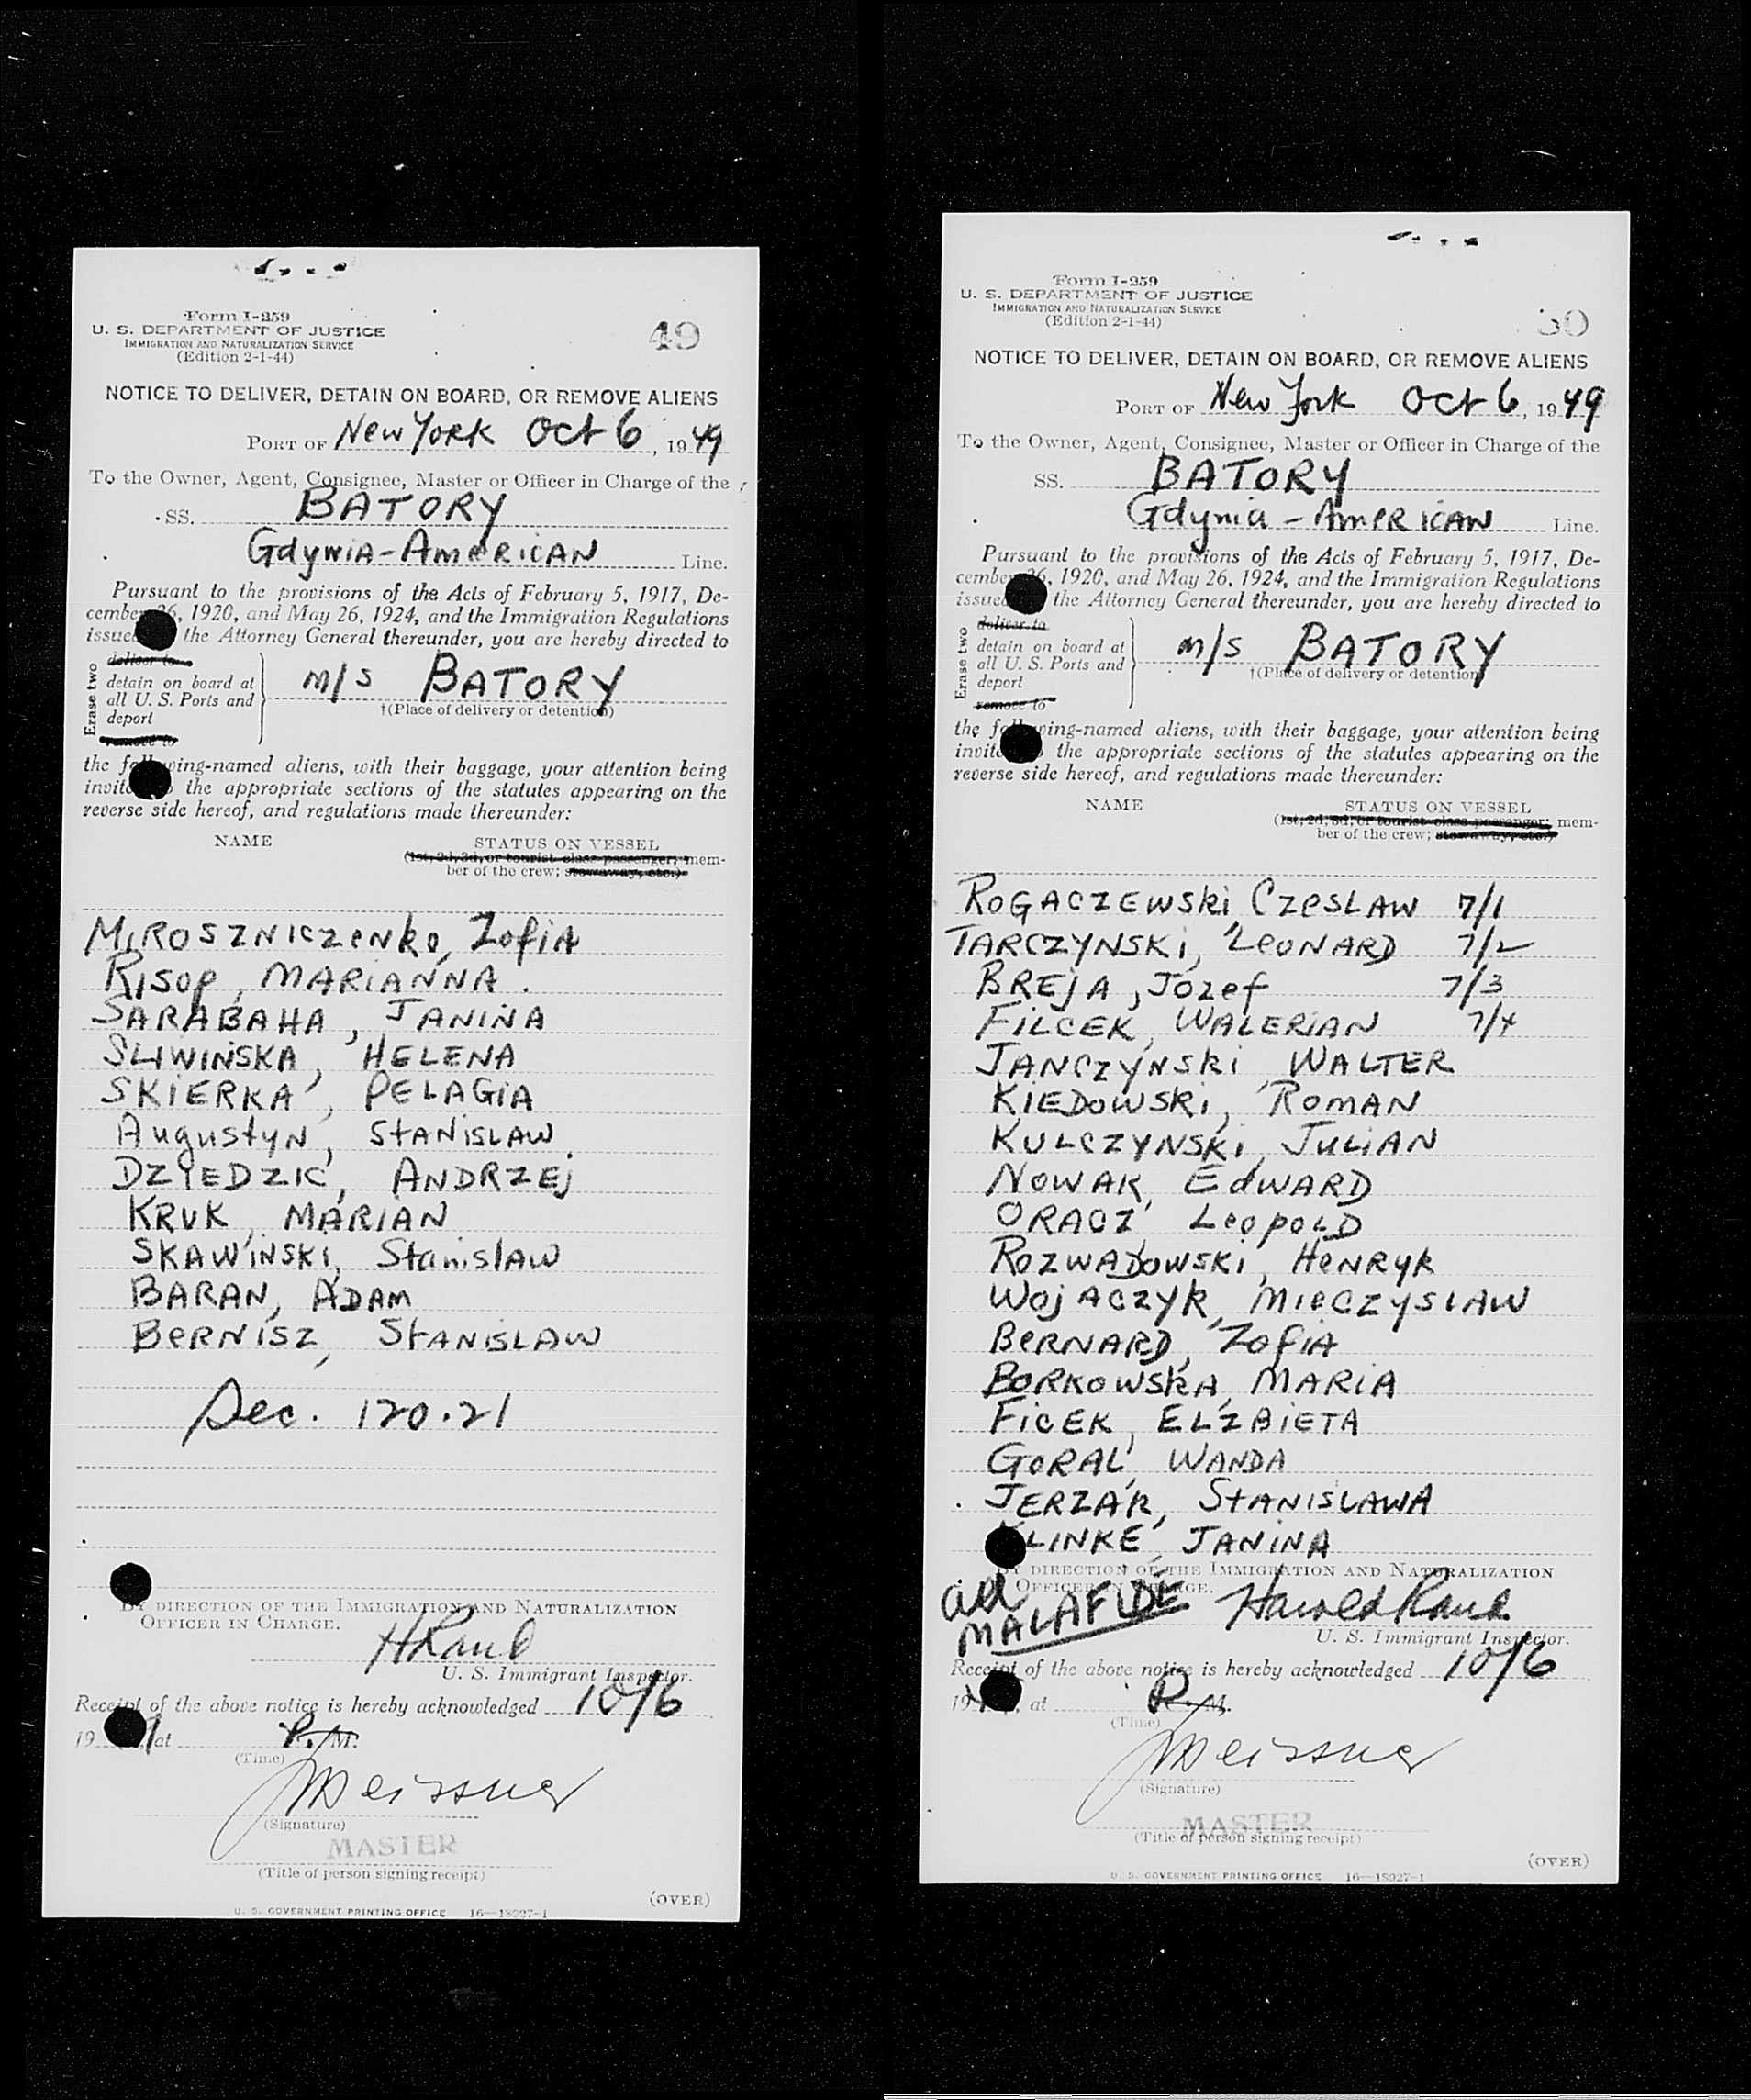 Form I-259
U. S. DEPARTMENT OF JUSTICE
IMMIGRATION AND NATURALIZATION SERVICE
(Edition 2-1-44)
49
NOTICE TO DELIVER, DETAIN ON BOARD, OR REMOVE ALIENS
PORT OF New York Oct 6, 1949
To the Owner, Agent, Consignee, Master or Officer in Charge of the
SS. BATORY
Gdynia-American Line.
Pursuant to the provisions of the Acts of February 5, 1917, De-
cember 26, 1920, and May 26, 1924, and the Immigration Regulations
issued the Attorney General thereunder, you are hereby directed to
Erase two
deliver to
detain on board at
all U. S. Ports and
deport
remove to
m/s BATORY
†(Place of delivery or detention)
the following-named aliens, with their baggage, your attention being
invited the appropriate sections of the statutes appearing on the
reverse side hereof, and regulations made thereunder:
NAME STATUS ON VESSEL
(1st, 2d, 3d, or tourist class passenger; mem-
ber of the crew; stowaway, etc.)
MIROSZNICZENKO, ZOFIA
RISOP, MARIANNA.
SARABAHA, JANINA
SLIWINSKA, HELENA
SKIERKA, PELAGIA
Augustyn, STANISLAW
DZIEDZIC, ANDRZEJ
KRUK, MARIAN
SKAWINSKI, Stanislaw
BARAN, ADAM
BERNISZ, STANISLAW
Sec. 120.21
BY DIRECTION OF THE IMMIGRATION AND NATURALIZATION
OFFICER IN CHARGE.
HRaub
U. S. Immigrant Inspector.
Receipt of the above notice is hereby acknowledged 10/6
19 at P. M.
(Time)
Meissner
(Signature)
MASTER
(Title of person signing receipt)
(OVER)
U. S. GOVERNMENT PRINTING OFFICE 16—18927-1
Form I-259
U. S. DEPARTMENT OF JUSTICE
IMMIGRATION AND NATURALIZATION SERVICE
(Edition 2-1-44)
50
NOTICE TO DELIVER, DETAIN ON BOARD, OR REMOVE ALIENS
PORT OF New York Oct 6, 1949
To the Owner, Agent, Consignee, Master or Officer in Charge of the
SS. BATORY
Gdynia - American Line.
Pursuant to the provisions of the Acts of February 5, 1917, De-
cember 26, 1920, and May 26, 1924, and the Immigration Regulations
issued the Attorney General thereunder, you are hereby directed to
Erase two
deliver to
detain on board at
all U. S. Ports and
deport
remove to
m/s BATORY
†(Place of delivery or detention)
the following-named aliens, with their baggage, your attention being
invited the appropriate sections of the statutes appearing on the
reverse side hereof, and regulations made thereunder:
NAME STATUS ON VESSEL
(1st, 2d, 3d, or tourist class passenger; mem-
ber of the crew; stowaway, etc.)
ROGACZEWSKI, CZESLAW 7/1
TARCZYNSKI, LEONARD 7/2
BREJA, JOZEF 7/3
FILCEK, WALERIAN 7/4
JANCZYNSKI WALTER
KIEDOWSKI, ROMAN
KULCZYNSKI, JULIAN
NOWAK, EDWARD
ORACZ, LEOPOLD
ROZWADOWSKI, HENRYK
WOJACZYK, MIECZYSLAW
BERNARD, ZOFIA
BORKOWSKA, MARIA
FICEK, ELZBIETA
GORAL, WANDA
JERZAK, STANISLAWA
KLINKE, JANINA
BY DIRECTION OF THE IMMIGRATION AND NATURALIZATION
OFFICER IN CHARGE.
all MALAFIDE
Harold Raub
U. S. Immigrant Inspector.
Receipt of the above notice is hereby acknowledged 10/6
19 , at P. M.
(Time)
Meissner
(Signature)
MASTER
(Title of person signing receipt)
(OVER)
U. S. GOVERNMENT PRINTING OFFICE 16—18927-1